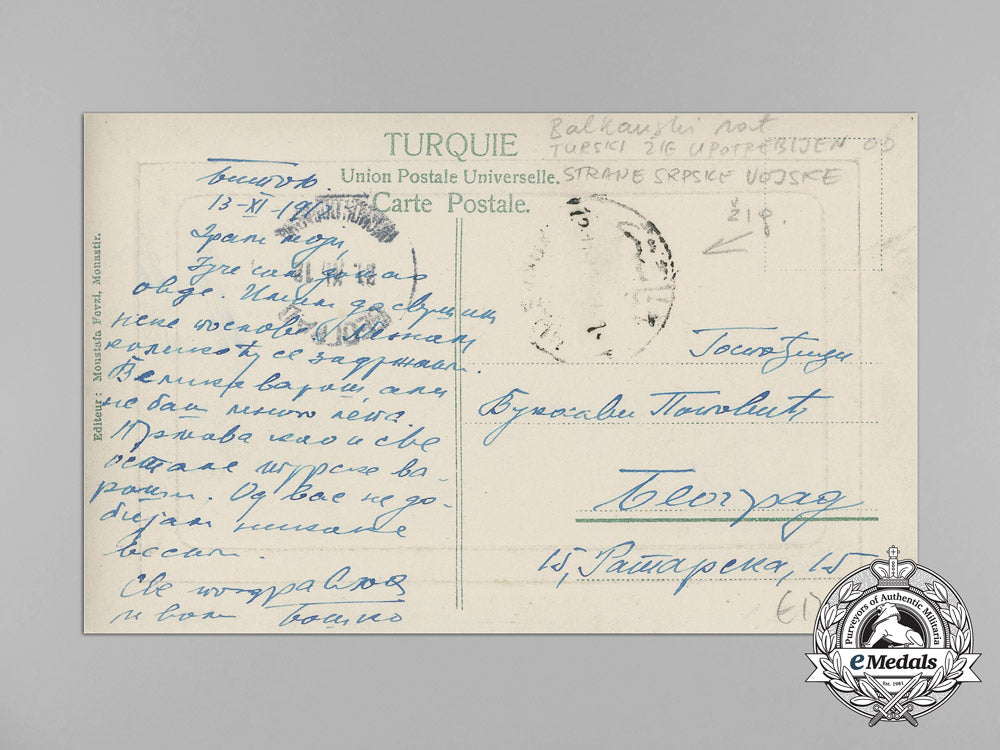 TURQUIE
Union Postale Universelle.
Carte Postale.
Balkanski rat
TURSKI ŽIG UPOTREBLJEN OD
STRANE SRPSKE VOJSKE
žig.
Editeur: Moustafa Fevzi, Monastir.
Битољ
13-XI-
Драги моји,
Јуче сам дошао
овде. Имам да свршим
неке послове. Не знам
колико ћу се задржати.
Велика варош, али
не баш много лепа.
Прљава као и све
остале турске ва-
роши. Од вас не до-
бијам никакве
вести.
Све поздравља
и воли Бошко
Господици
Вукосави Поповић
Београд
15, Ратарска, 15
Purveyors of Authentic Militaria
eMedals
Est. 1981